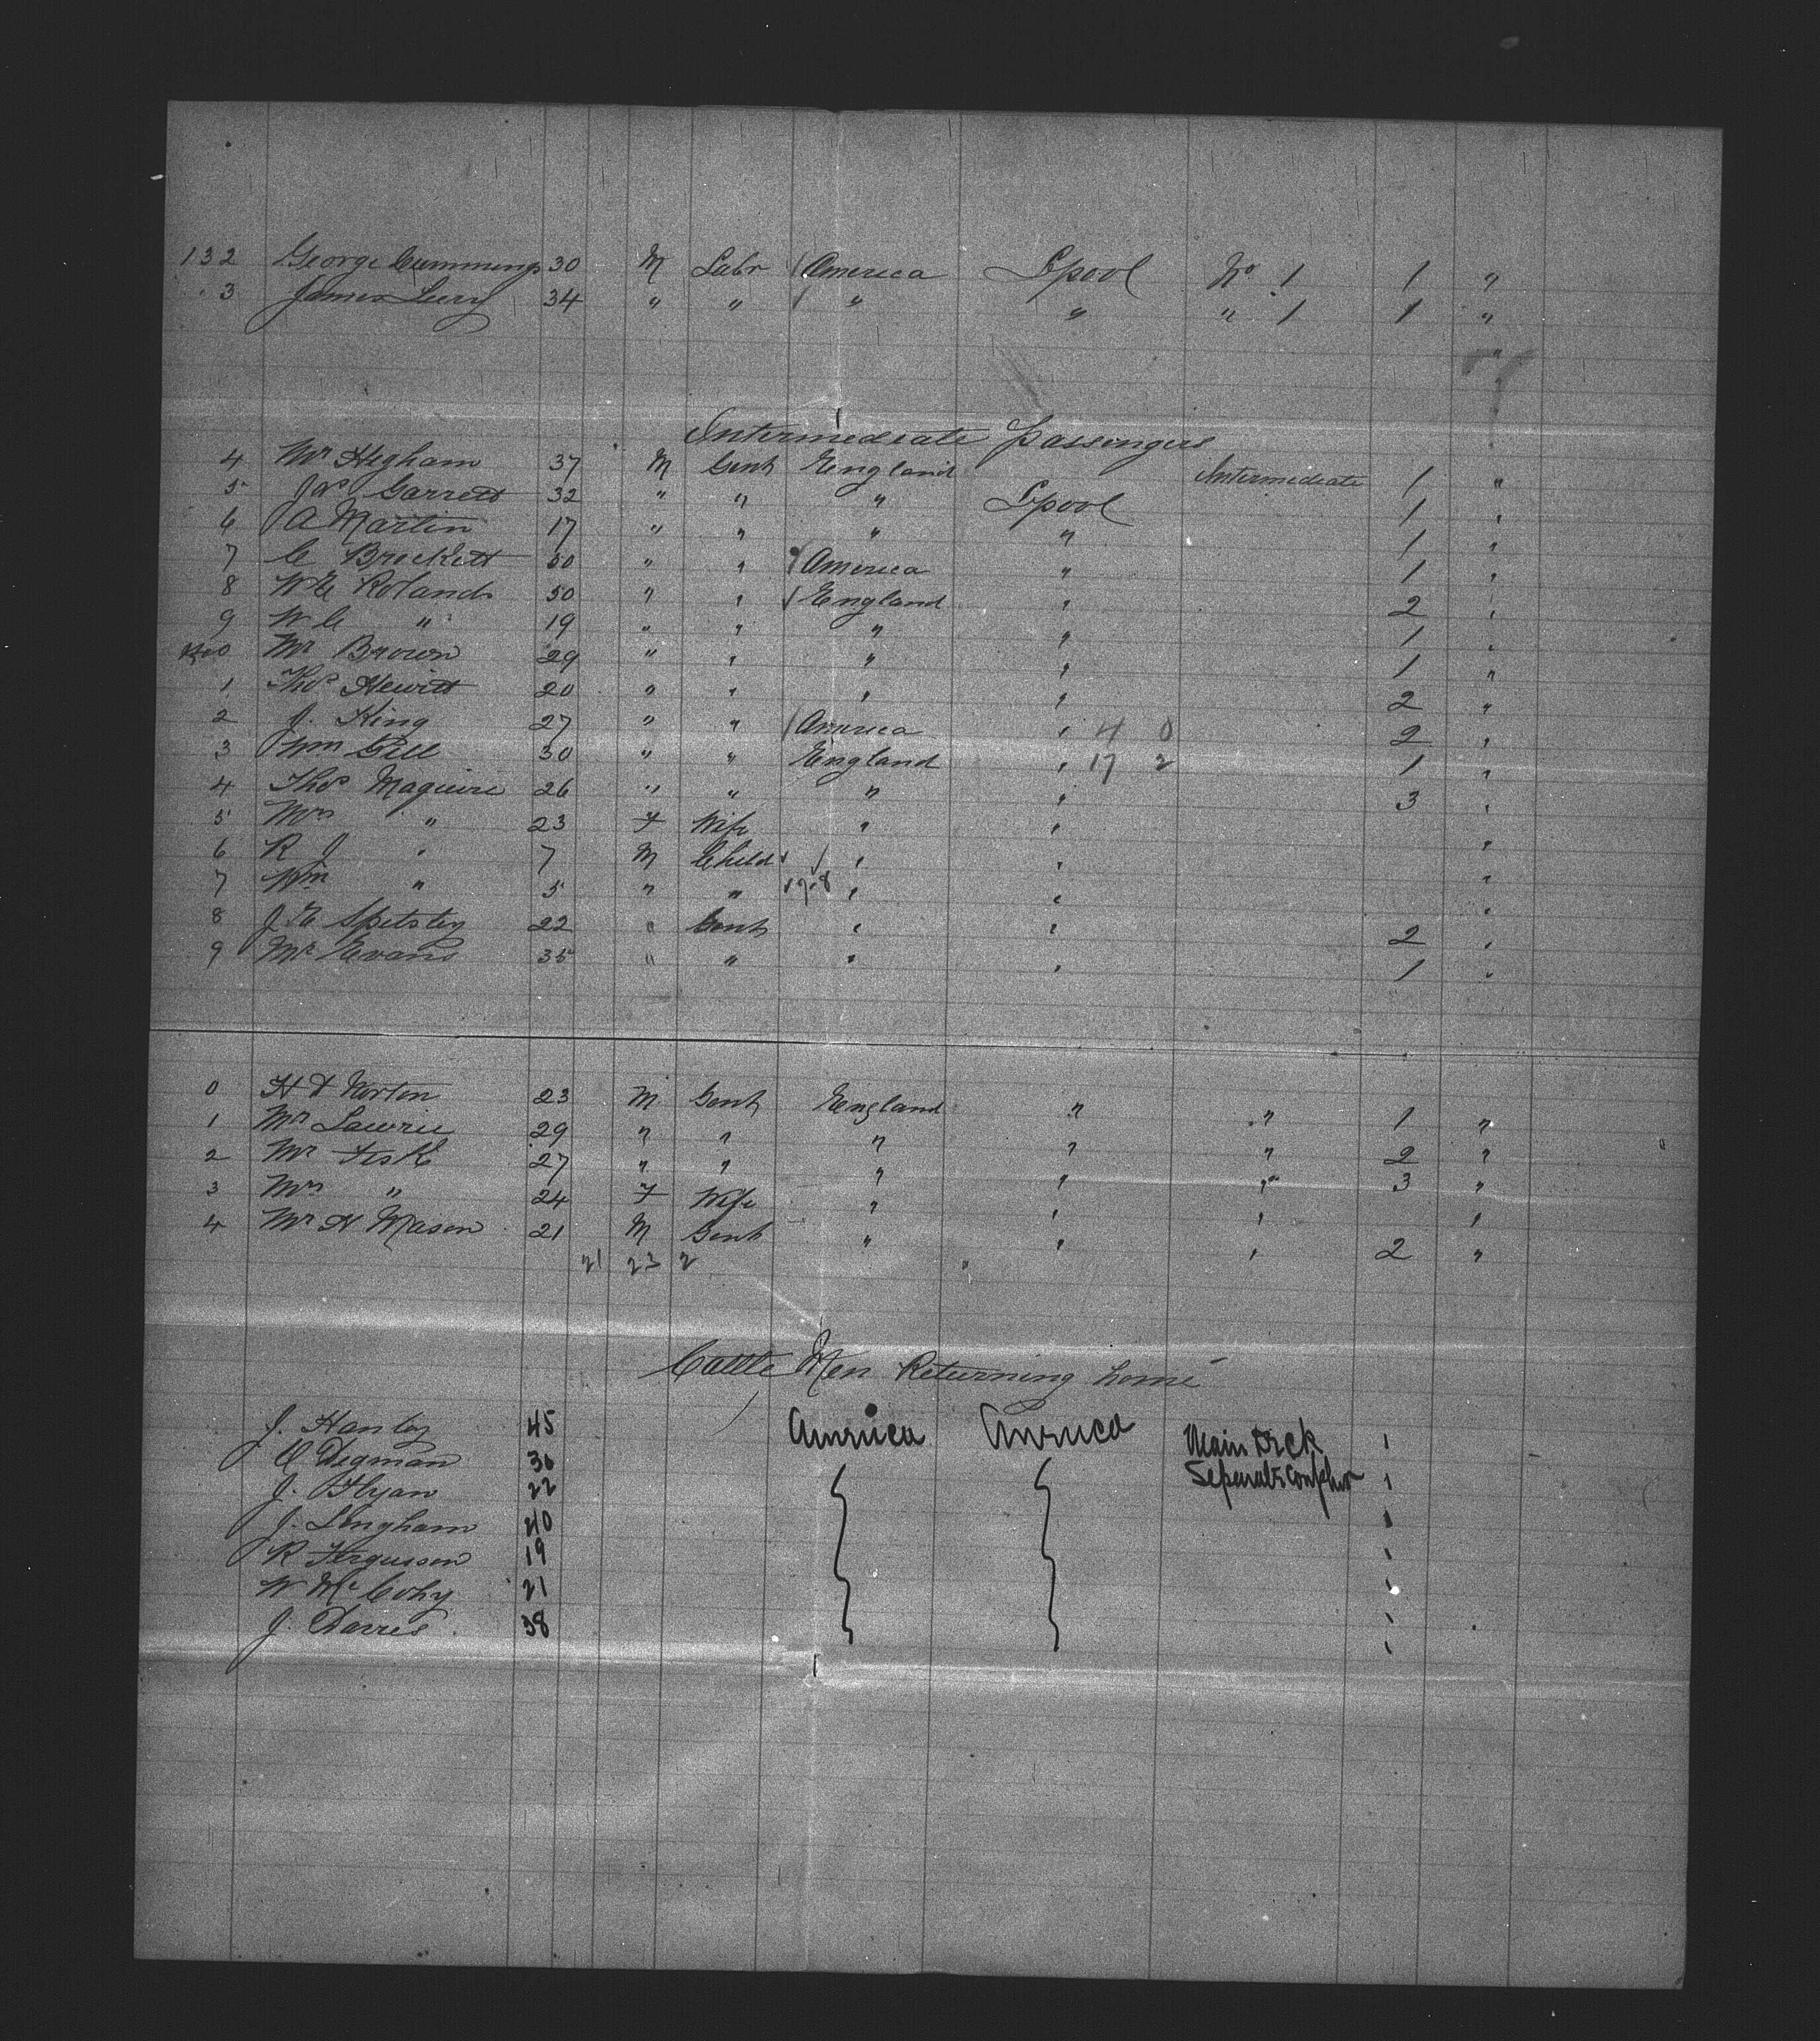 132 George Cummings 30 M Labr / America Lpool No 1 1 "
3 James 34 " " / " " " 1 1 "
Intermediate Passengers
4 Mr Hegham 37 M Gent England Intermediate 1 "
5 Jas Garrett 32 " " " Lpool 1 "
6 A Martin 17 " " " " 1 "
7 C Brockett 50 " " America " 1 "
8 W E Rolands 50 " " / England " 2 "
9 W C " 19 " " " " 1 "
0 Mr Brown 29 " " " " 1 "
1 Thos Hewitt 20 " " " " 2 "
2 J. King 27 " " / America " 4 0 2 "
3 Wm Gill 30 " " England " 17 2 1 "
4 Thos Maguire 26 " " " " 3 "
5 Mrs " 23 F Wife " " "
6 R J " 7 M Child " " "
7 Wm " 5 " " " " "
8 J E 22 " Gent " " 2 "
9 Mr Evans 35 " " " " 1 "
0 H Norton 23 M Gent England " " 1 "
1 Mr Lawrie 29 " " " " " 2 "
2 Mr Fisk 27 " " " " " 3 "
3 Mrs " 24 F Wife " " " "
4 Mr H Mason 21 M Gent " " " 2 "
21 23 2
Cattle Men Returning home
J. Hanley 45 America America Main Deck 1
C Degman 36 Separate 1
J. Flyan 22
J. Lingham 40
R Ferguson 19
W 21
J. Davies 38